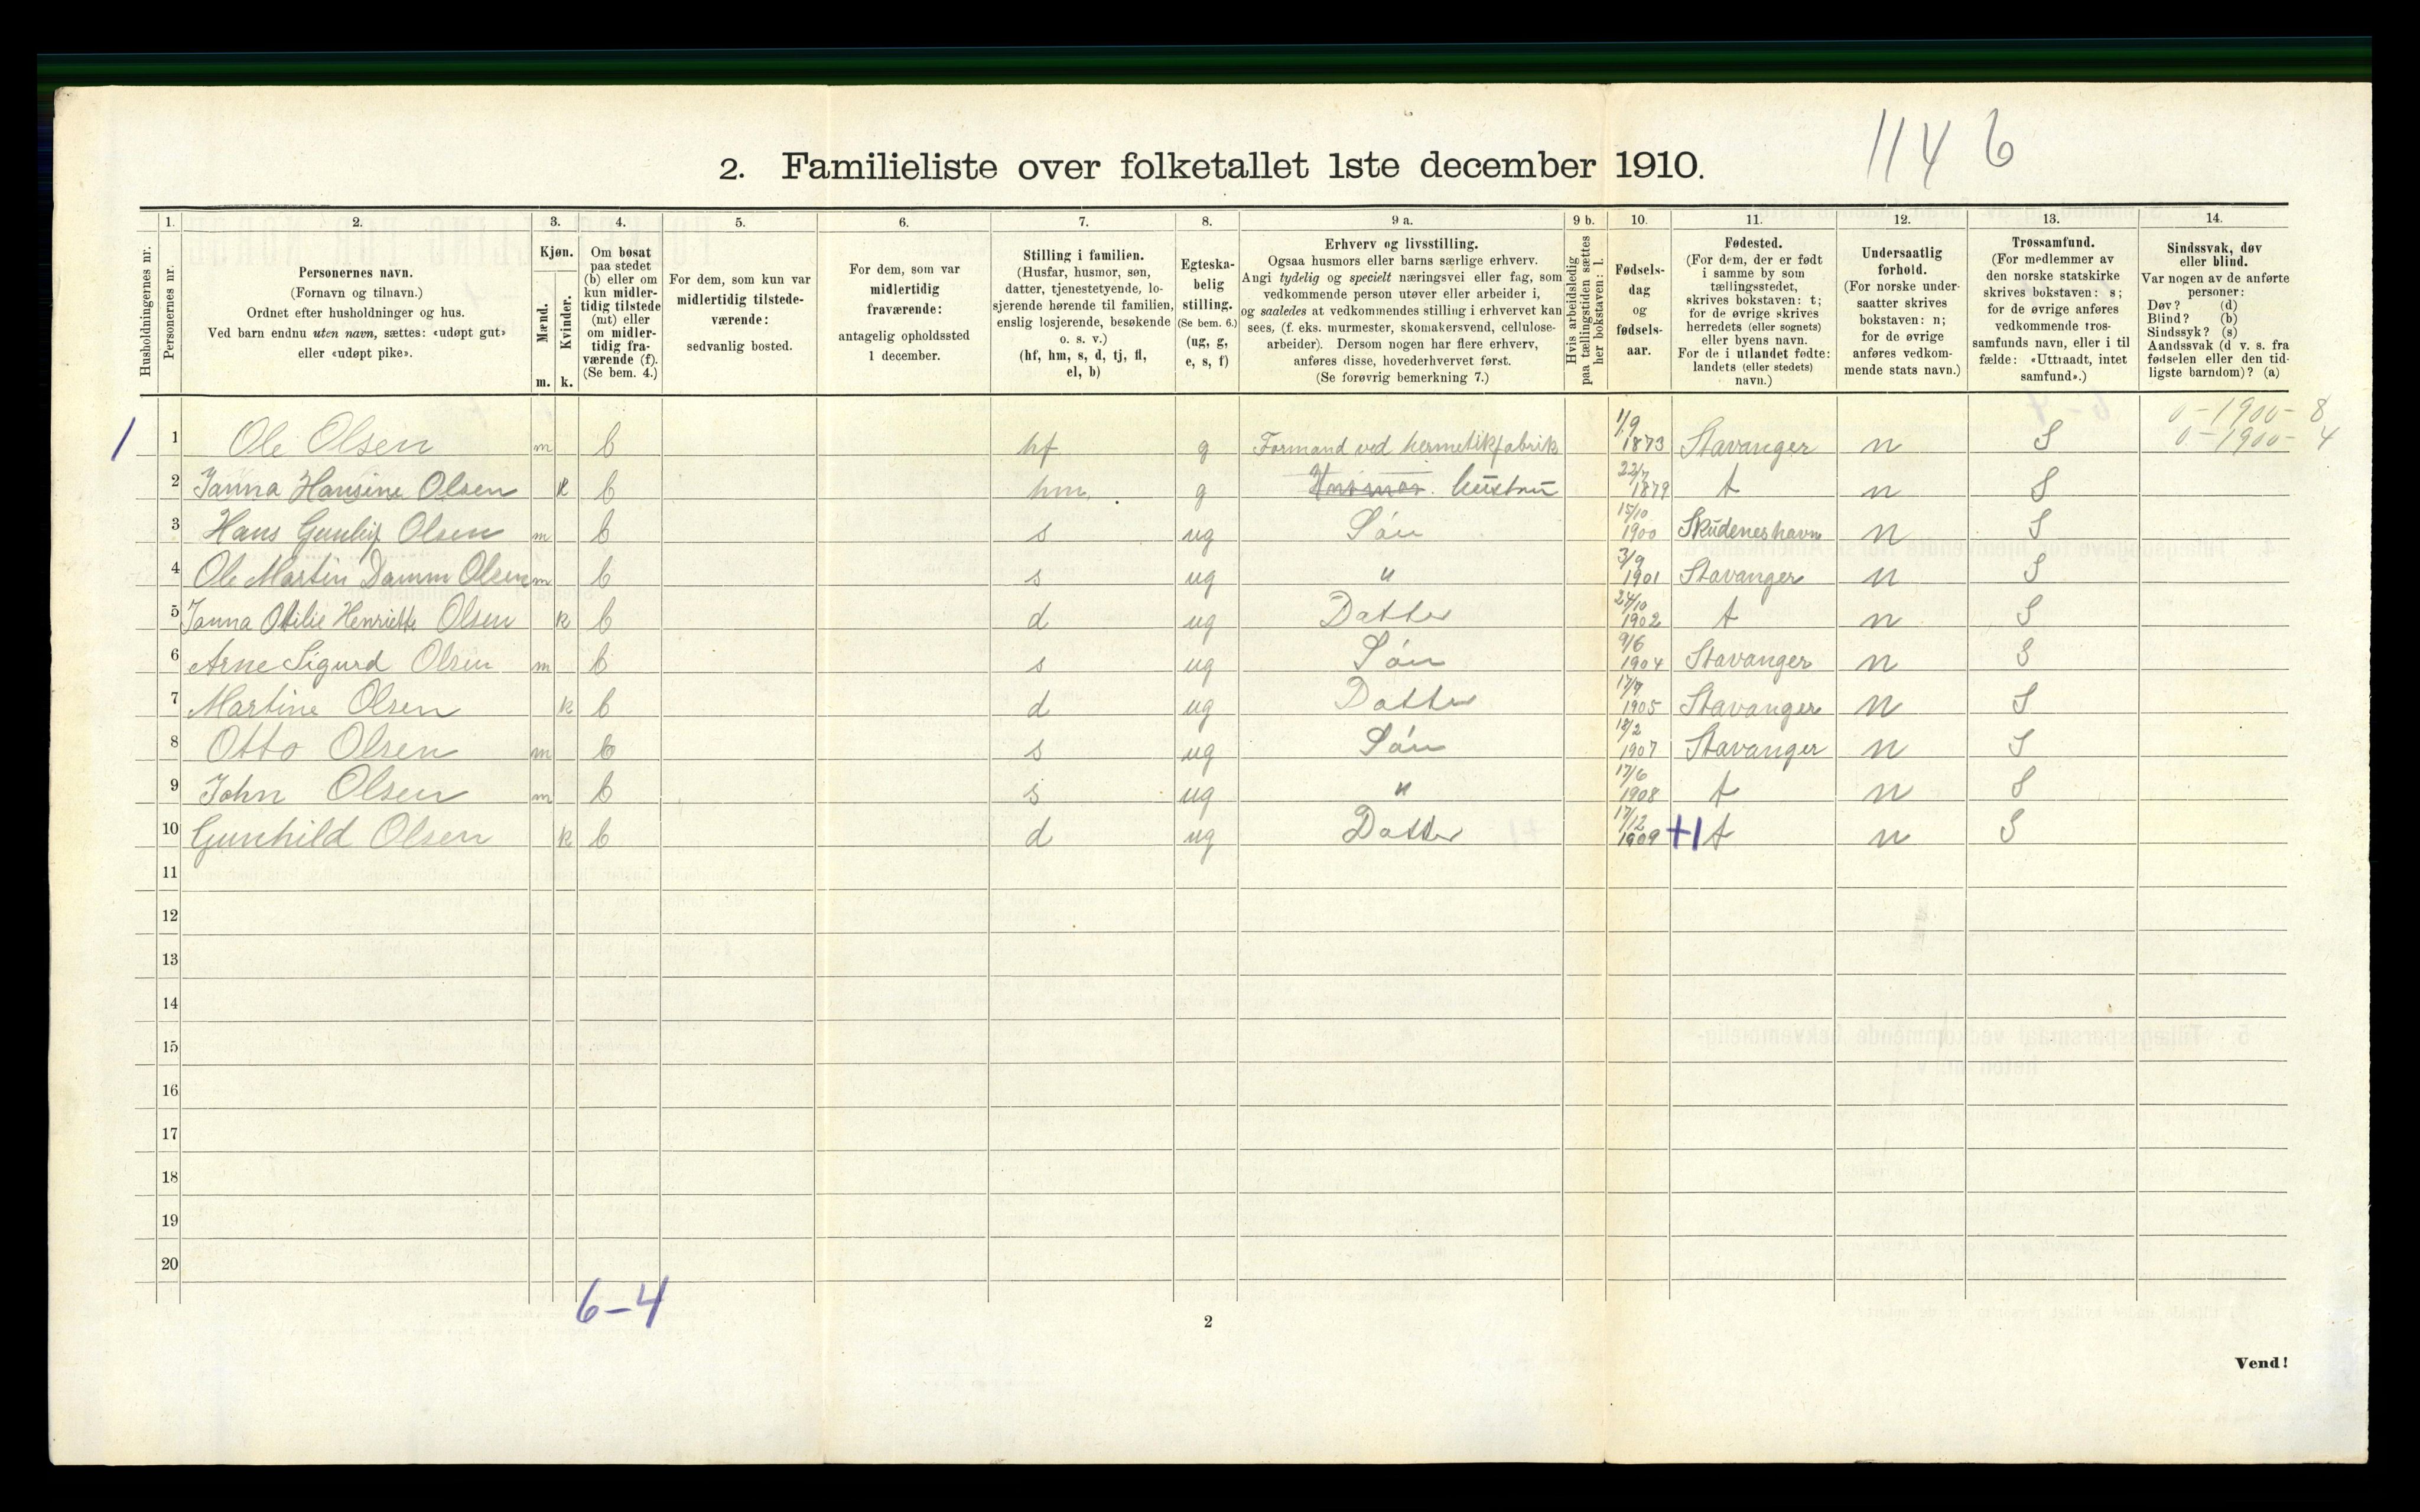 1146
2. Familieliste over folketallet 1ste december 1910.
1. 2. 3. 4. 5. 6. 7. 8. 9 a. 9 b. 10. 11. 12. 13. 14.
Husholdningernes nr.
Personernes nr.
Personernes navn.
(Fornavn og tilnavn.)
Ordnet efter husholdninger og hus.
Ved barn endnu uten navn, sættes: «udøpt gut»
eller «udøpt pike».
Kjøn.
Mænd.
Kvinder.
m. k.
Om bosat
paa stedet
(b) eller om
kun midler-
tidig tilstede
(mt) eller
om midler-
tidig fra-
værende (f).
(Se bem. 4.)
For dem, som kun var
midlertidig tilstede-
værende:
sedvanlig bosted.
For dem, som var
midlertidig
fraværende:
antagelig opholdssted
1 december.
Stilling i familien.
(Husfar, husmor, søn,
datter, tjenestetyende, lo-
sjerende hørende til familien,
enslig losjerende, besøkende
o. s. v.)
(hf, hm, s, d, tj, fl,
el, b)
Egteska-
belig
stilling.
(Se bem. 6.)
(ug, g,
e, s, f)
Erhverv og livsstilling.
Ogsaa husmors eller barns særlige erhverv.
Angi tydelig og specielt næringsvei eller fag, som
vedkommende person utøver eller arbeider i,
og saaledes at vedkommendes stilling i erhvervet kan
sees, (f. eks. murmester, skomakersvend, cellulose-
arbeider). Dersom nogen har flere erhverv,
anføres disse, hovederhvervet først.
(Se forøvrig bemerkning 7.)
Hvis arbeidsledig
paa tællingstiden sættes
her bokstaven: l.
Fødsels-
dag
og
fødsels-
aar.
Fødested.
(For dem, der er født
i samme by som
tællingsstedet,
skrives bokstaven: t;
for de øvrige skrives
herredets (eller sognets)
eller byens navn.
For de i utlandet fødte:
landets (eller stedets)
navn.)
Undersaatlig
forhold.
(For norske under-
saatter skrives
bokstaven: n;
for de øvrige
anføres vedkom-
mende stats navn.)
Trossamfund.
(For medlemmer av
den norske statskirke
skrives bokstaven: s;
for de øvrige anføres
vedkommende tros-
samfunds navn, eller i til
fælde: «Uttraadt, intet
samfund».)
Sindssvak, døv
eller blind.
Var nogen av de anførte
personer:
Døv? (d)
Blind? (b)
Sindssyk? (s)
Aandssvak (d. v. s. fra
fødselen eller den tid-
ligste barndom)? (a)
0-1900-8
0-1900-4
1 1 Ole Olsen m b hf g Formand ved hermetikfabrik 1/9 1873 Stavanger n S
2 Janna Hansine Olsen k b hm g Husmor. hustru 22/7 1879 t n S
3 Hans Gunleif Olsen m b s ug Søn 15/10 1900 Skudeneshavn n S
4 Ole Martin Damm Olsen m b s ug " 3/9 1901 Stavanger n S
5 Janna Otilie Henriette Olsen k b d ug Datter 24/10 1902 t n S
6 Arne Sigurd Olsen m b s ug Søn 9/6 1904 Stavanger n S
7 Martine Olsen k b d ug Datter 1905 Stavanger n S
8 Otto Olsen m b s ug Søn 1907 Stavanger n S
9 John Olsen m b s ug " 17/6 1908 t n S
10 Gunhild Olsen k b d ug Datter 17/12 1909 +1 t n S
11
12
13
14
15
16
17
18
19
20
6-4
2
Vend!